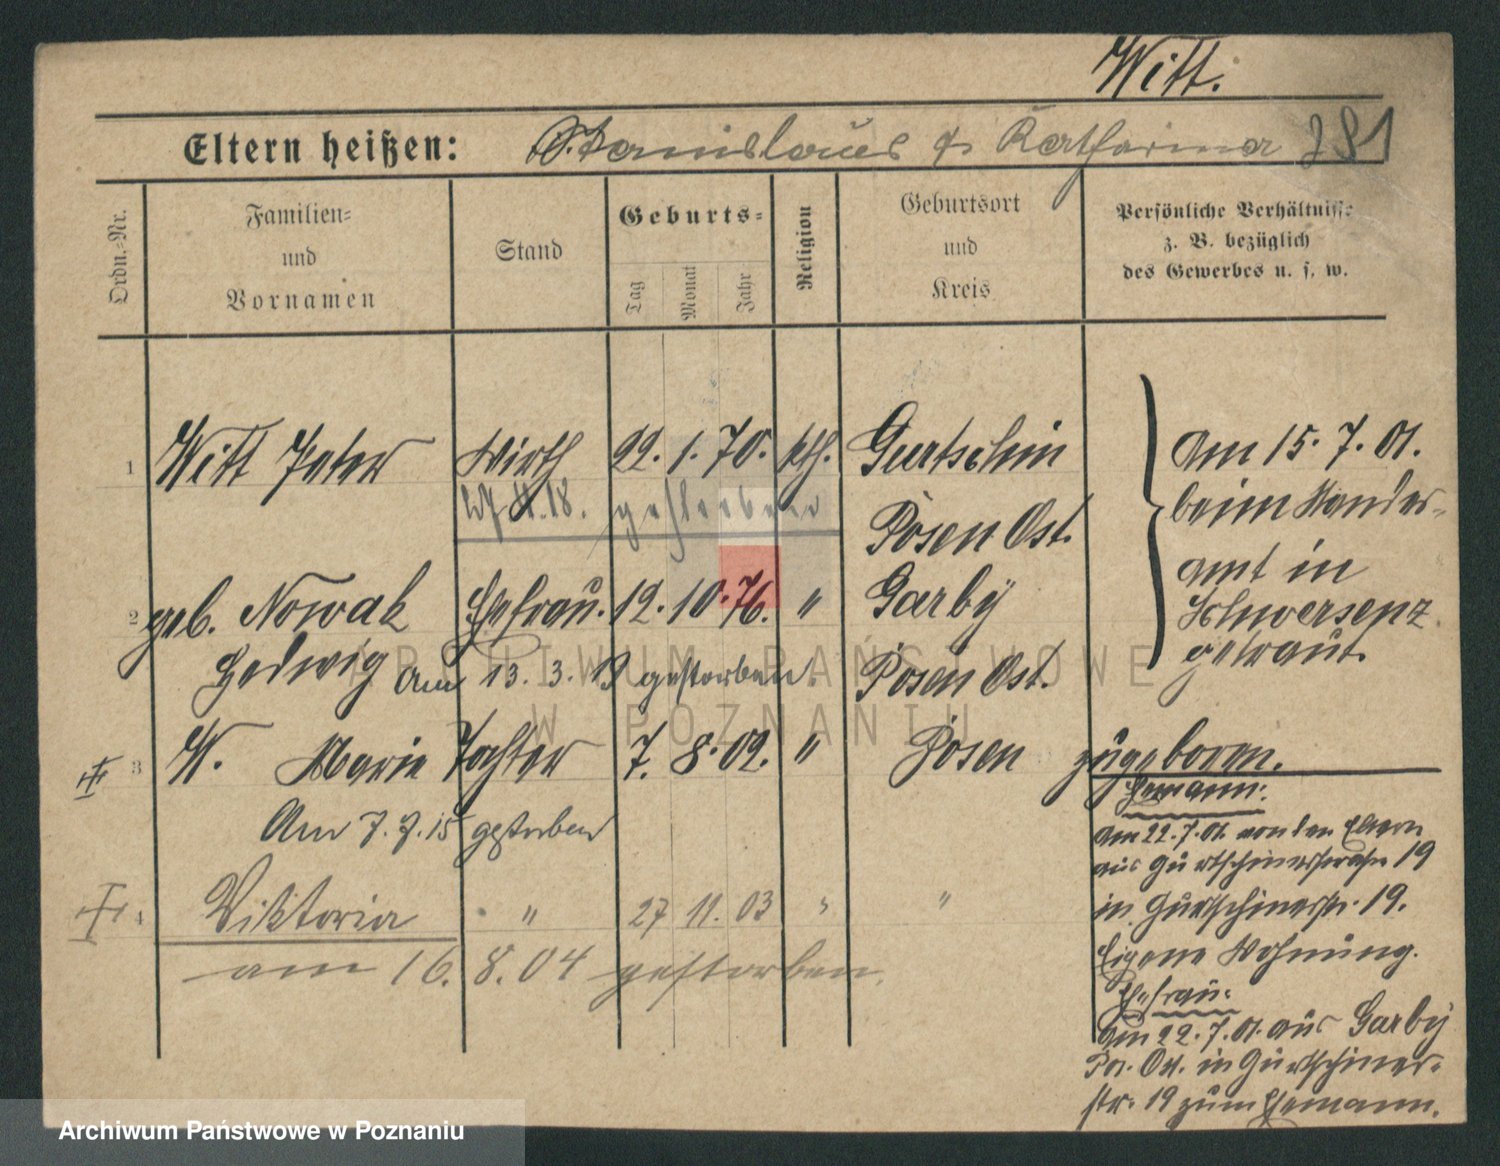 Witt.
Eltern heißen: Stanislaus u. Katharina 281
Ordn.-Nr.
Familien- und Vornamen
Stand
Geburts-
Tag Monat Jahr
Religion
Geburtsort und Kreis
Persönliche Verhältnisse
z. B. bezüglich
des Gewerbes u. s. w.
1 Witt Peter Wirth 22. 1. 70. kth. Gurtschin
18. gestorben
Posen Ost.
am 15. 7. 01.
beim Standes-
amt in
Schwersenz
getraut.
2 geb. Nowak Ehefrau. 12. 10. 76. " Garby
Hedwig am 13. 3. 13 gestorben. Posen Ost.
3 W. Marie Tochter 7. 8. 02. " Posen zugeboren.
Am 7. 7. 15 gestorben
4 Viktoria " 27 11. 03 " "
am 16. 8. 04 gestorben.
Ehemann:
am 22. 7. 01. von den Eltern
aus Gurtschinerstraße 19
in Gurtschinerstr. 19.
Eigene Wohnung.
Ehefrau:
am 22. 7. 01. aus Garby
Pos. Ost. in Gurtschiner-
str. 19 zum Ehemann.
ARCHIWUM PAŃSTWOWE
W POZNANIU
Archiwum Państwowe w Poznaniu